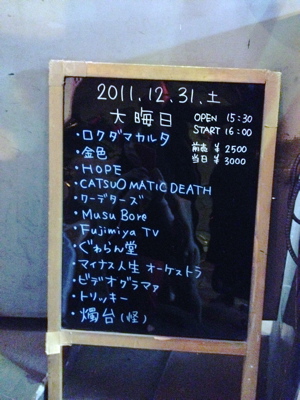 2011.12.31.土
大晦日
OPEN 15:30
START 16:00
前売 ¥2500
当日 ¥3000
・ロクダマカルタ
・金色
・HOPE
・CATSUOMATIC DEATH
・クーデターズ
・Musu Bore
・Fujimiya TV
・ぐゎらん堂
・マイナス人生オーケストラ
・ビデオグラマァ
・トリッキー
・燭台(怪)